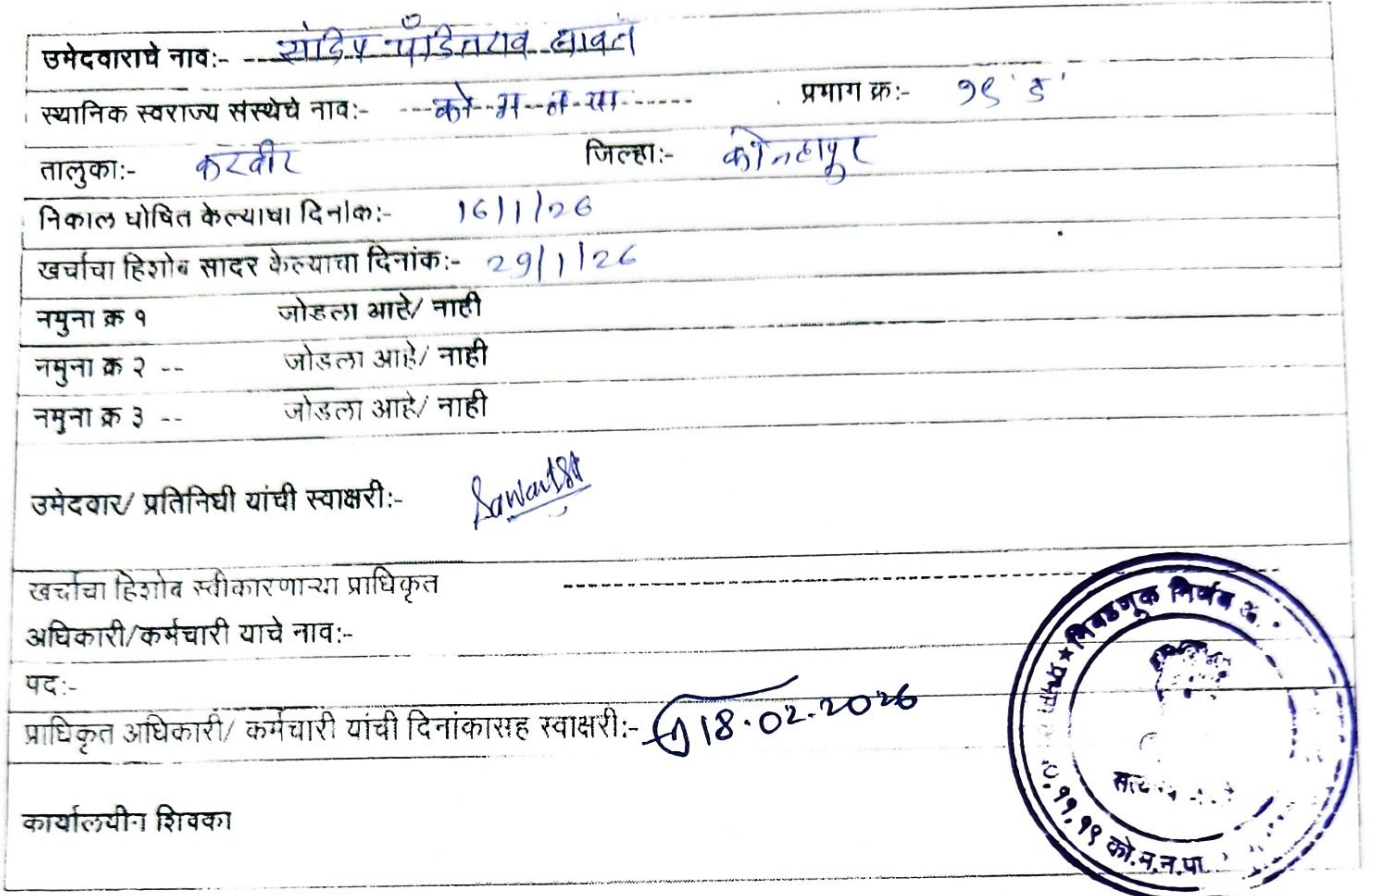 उमेदवाराचे नाव:- संदिप पंडितराव सावंत
स्थानिक स्वराज्य संस्थेचे नाव:- को म न पा प्रभाग क्र:- १९ 'ड'
तालुका:- करवीर जिल्हा:- कोल्हापूर
निकाल घोषित केल्याचा दिनांक:- 16/1/26
खर्चाचा हिशोब सादर केल्याचा दिनांक:- 29/1/26
नमुना क्र १ जोडला आहे/ नाही
नमुना क्र २ -- जोडला आहे/ नाही
नमुना क्र ३ -- जोडला आहे/ नाही
उमेदवार/ प्रतिनिधी यांची स्वाक्षरी:- Sawant
खर्चाचा हिशोब स्वीकारणाऱ्या प्राधिकृत
अधिकारी/कर्मचारी याचे नाव:-
पद:-
प्राधिकृत अधिकारी/ कर्मचारी यांची दिनांकासह स्वाक्षरी:- 18.02.2026
कार्यालयीन शिक्का
निवडणूक निर्णय
११,१९ को.म.न.पा.